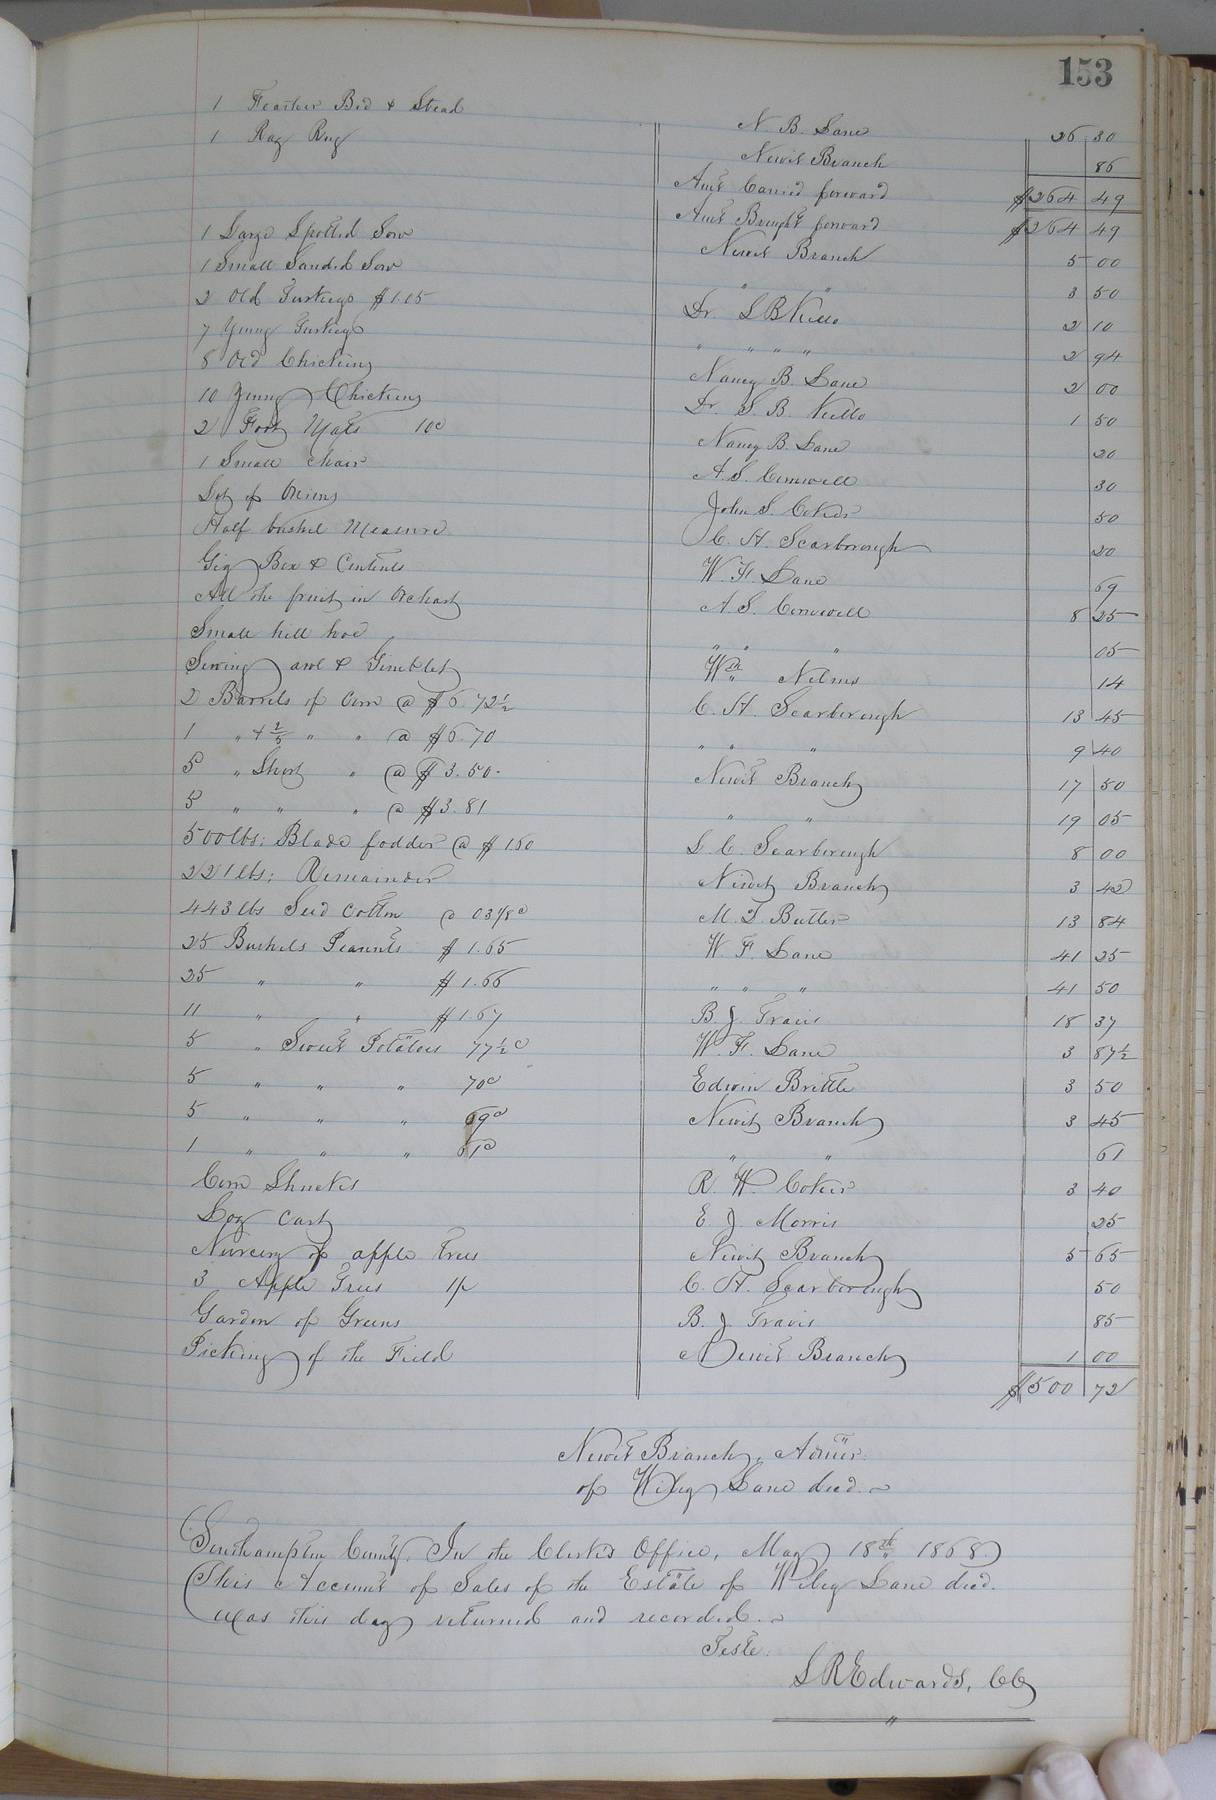 153
1 Feather Bed & Stead N. B. Lane 26 30
1 Rag Rug Newit Branch 86
Amt Carried forward $264 49
Amt Brought forward $264 49
1 Large Spotted Sow Newit Branch 5 00
1 Small Sanded Sow " " 3 50
2 Old Turkeys $1.05 Dr. S B Kello 2 10
7 Young Turkeys " " " " 2 94
8 Old Chickens Nancy B. Lane 2 00
10 Young Chickens Dr. S. B. Kello 1 50
2 Foot Mats 10c Nancy B. Lane 20
1 Small Chair A. S. 30
Lot of Onions John S. Coker 50
Half bushel Measure C. H. Scarborough 20
Gig Box & Contents W. F. Lane 69
All the fruit in Orchard A. S. 8 25
Small hill hoe " " " 05
Sewing awl & Gimblet Wm Nelms 14
2 Barrels of Corn @ $6.72½ C. H. Scarborough 13 45
1 " & 2/5 " " @ $6.70 " " " 9 40
5 " Short " @ $3.50. Newit Branch 17 50
5 " " " @ $3.81 " " 19 05
500 lbs: Blade fodder @ $1.60 L. C. Scarborough 8 00
221 lbs: Remainder Newit Branch 3 42
443 lbs Seed Cotton @ 03⅛c M. T. Butler 13 84
25 Bushels Peanuts $1.65 W. F. Lane 41 25
25 " " $1.66 " " " 41 50
11 " " $1.67 B. J. Travis 18 37
5 " Sweet Potatoes 77½c W. F. Lane 3 87½
5 " " " 70c Edwin Brittle 3 50
5 " " " 69c Newit Branch 3 45
1 " " " 61c " " 61
Corn Shucks R. W. Coker 3 40
Log Cart E. J. Morris 25
Nursery of apple trees Newit Branch 5 65
3 Apple Trees C. H. Scarborough 50
Garden of Greens B. J. Travis 85
Picking of the Field Newit Branch 1 00
$500 72
Newit Branch, Admr.
of Wiley Lane decd.
Southampton County, In the Clerk's Office, May 18th 1868.
This Account of Sales of the Estate of Wiley Lane decd.
was this day returned and recorded.
Teste.
L R Edwards, CC